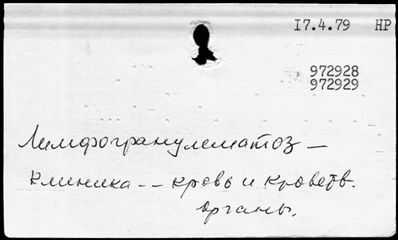 17.4.79 НР
972928
972929
Лимфогранулематоз –
клиника -- кровь и кроветв.
органы.